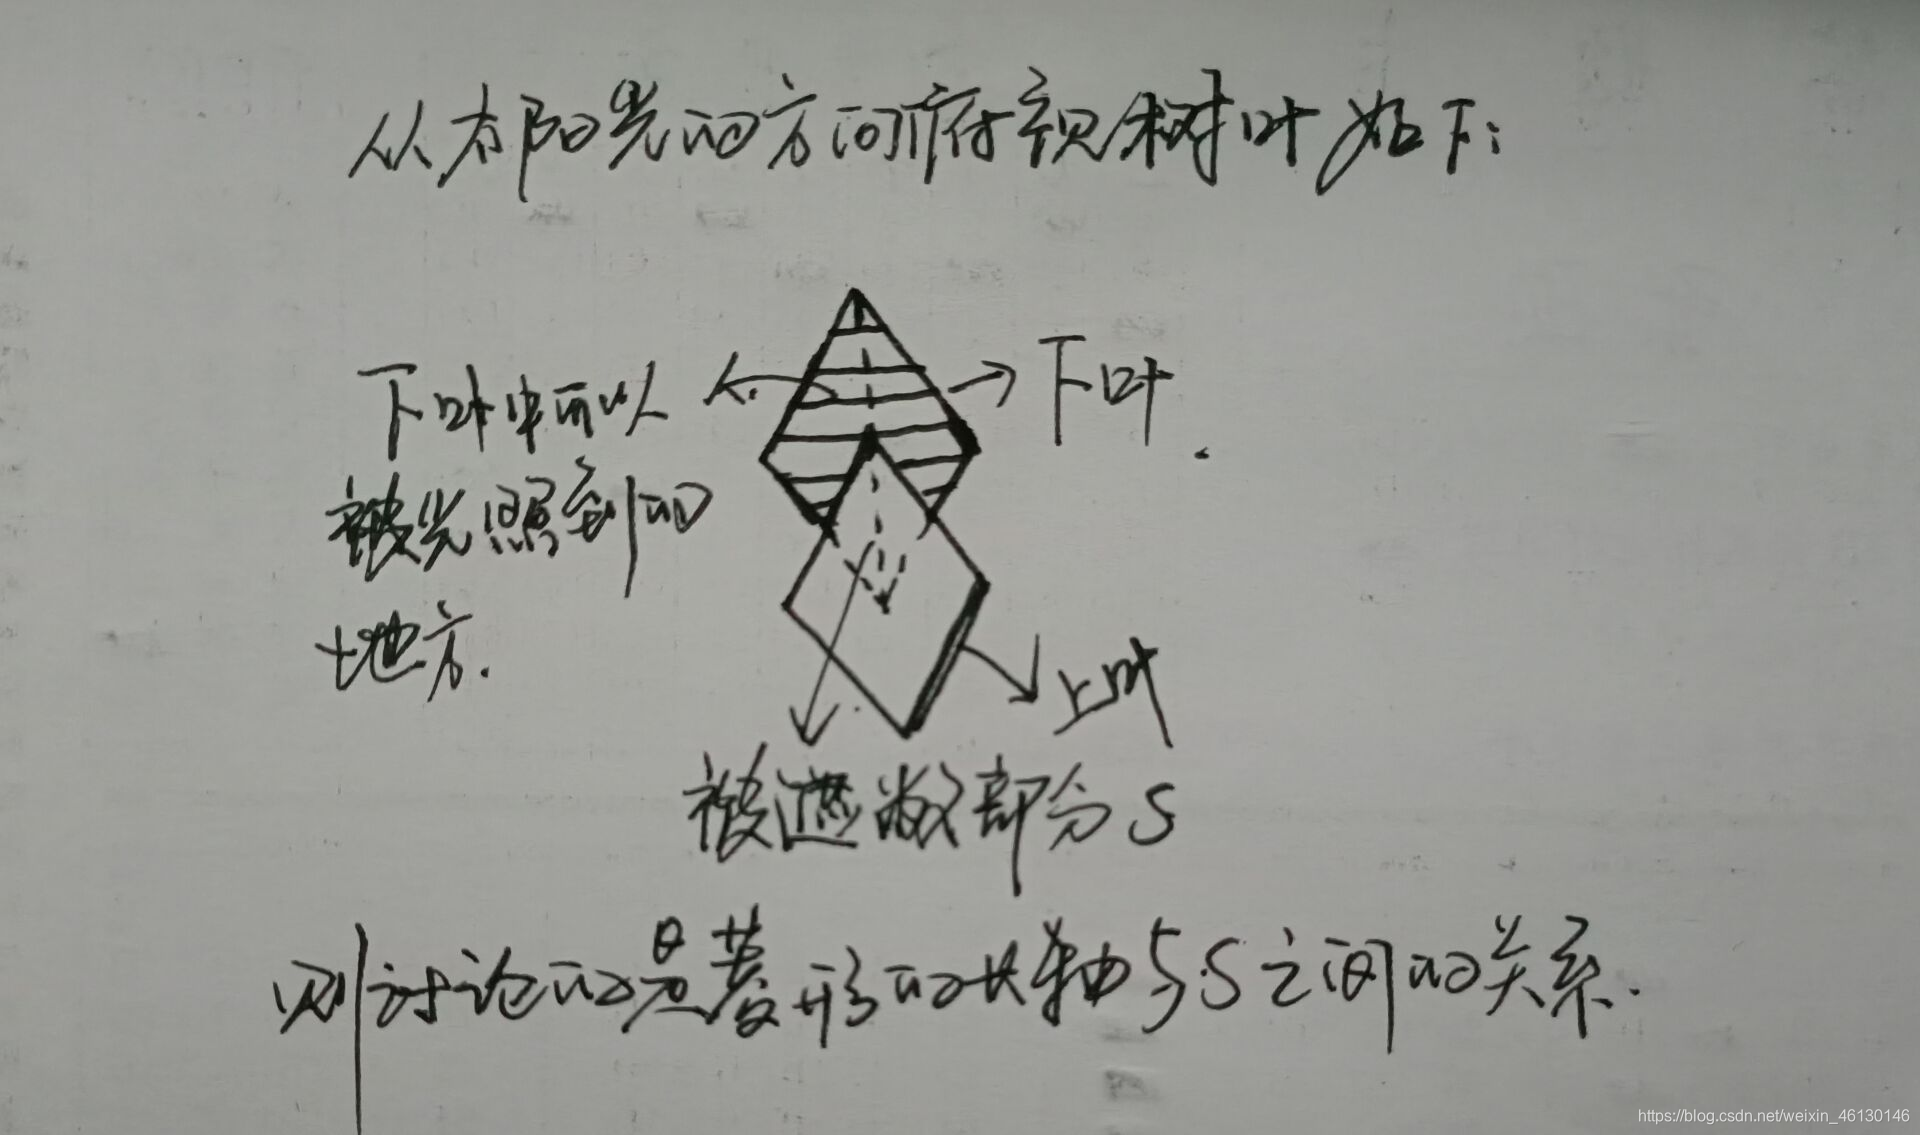 从有阳光的方向俯视树叶如下：
下叶中可以
被光照到的
地方.
下叶.
上叶
被遮蔽部分S
则讨论的是菱形的长轴与S之间的关系.
https://blog.csdn.net/weixin_46130146